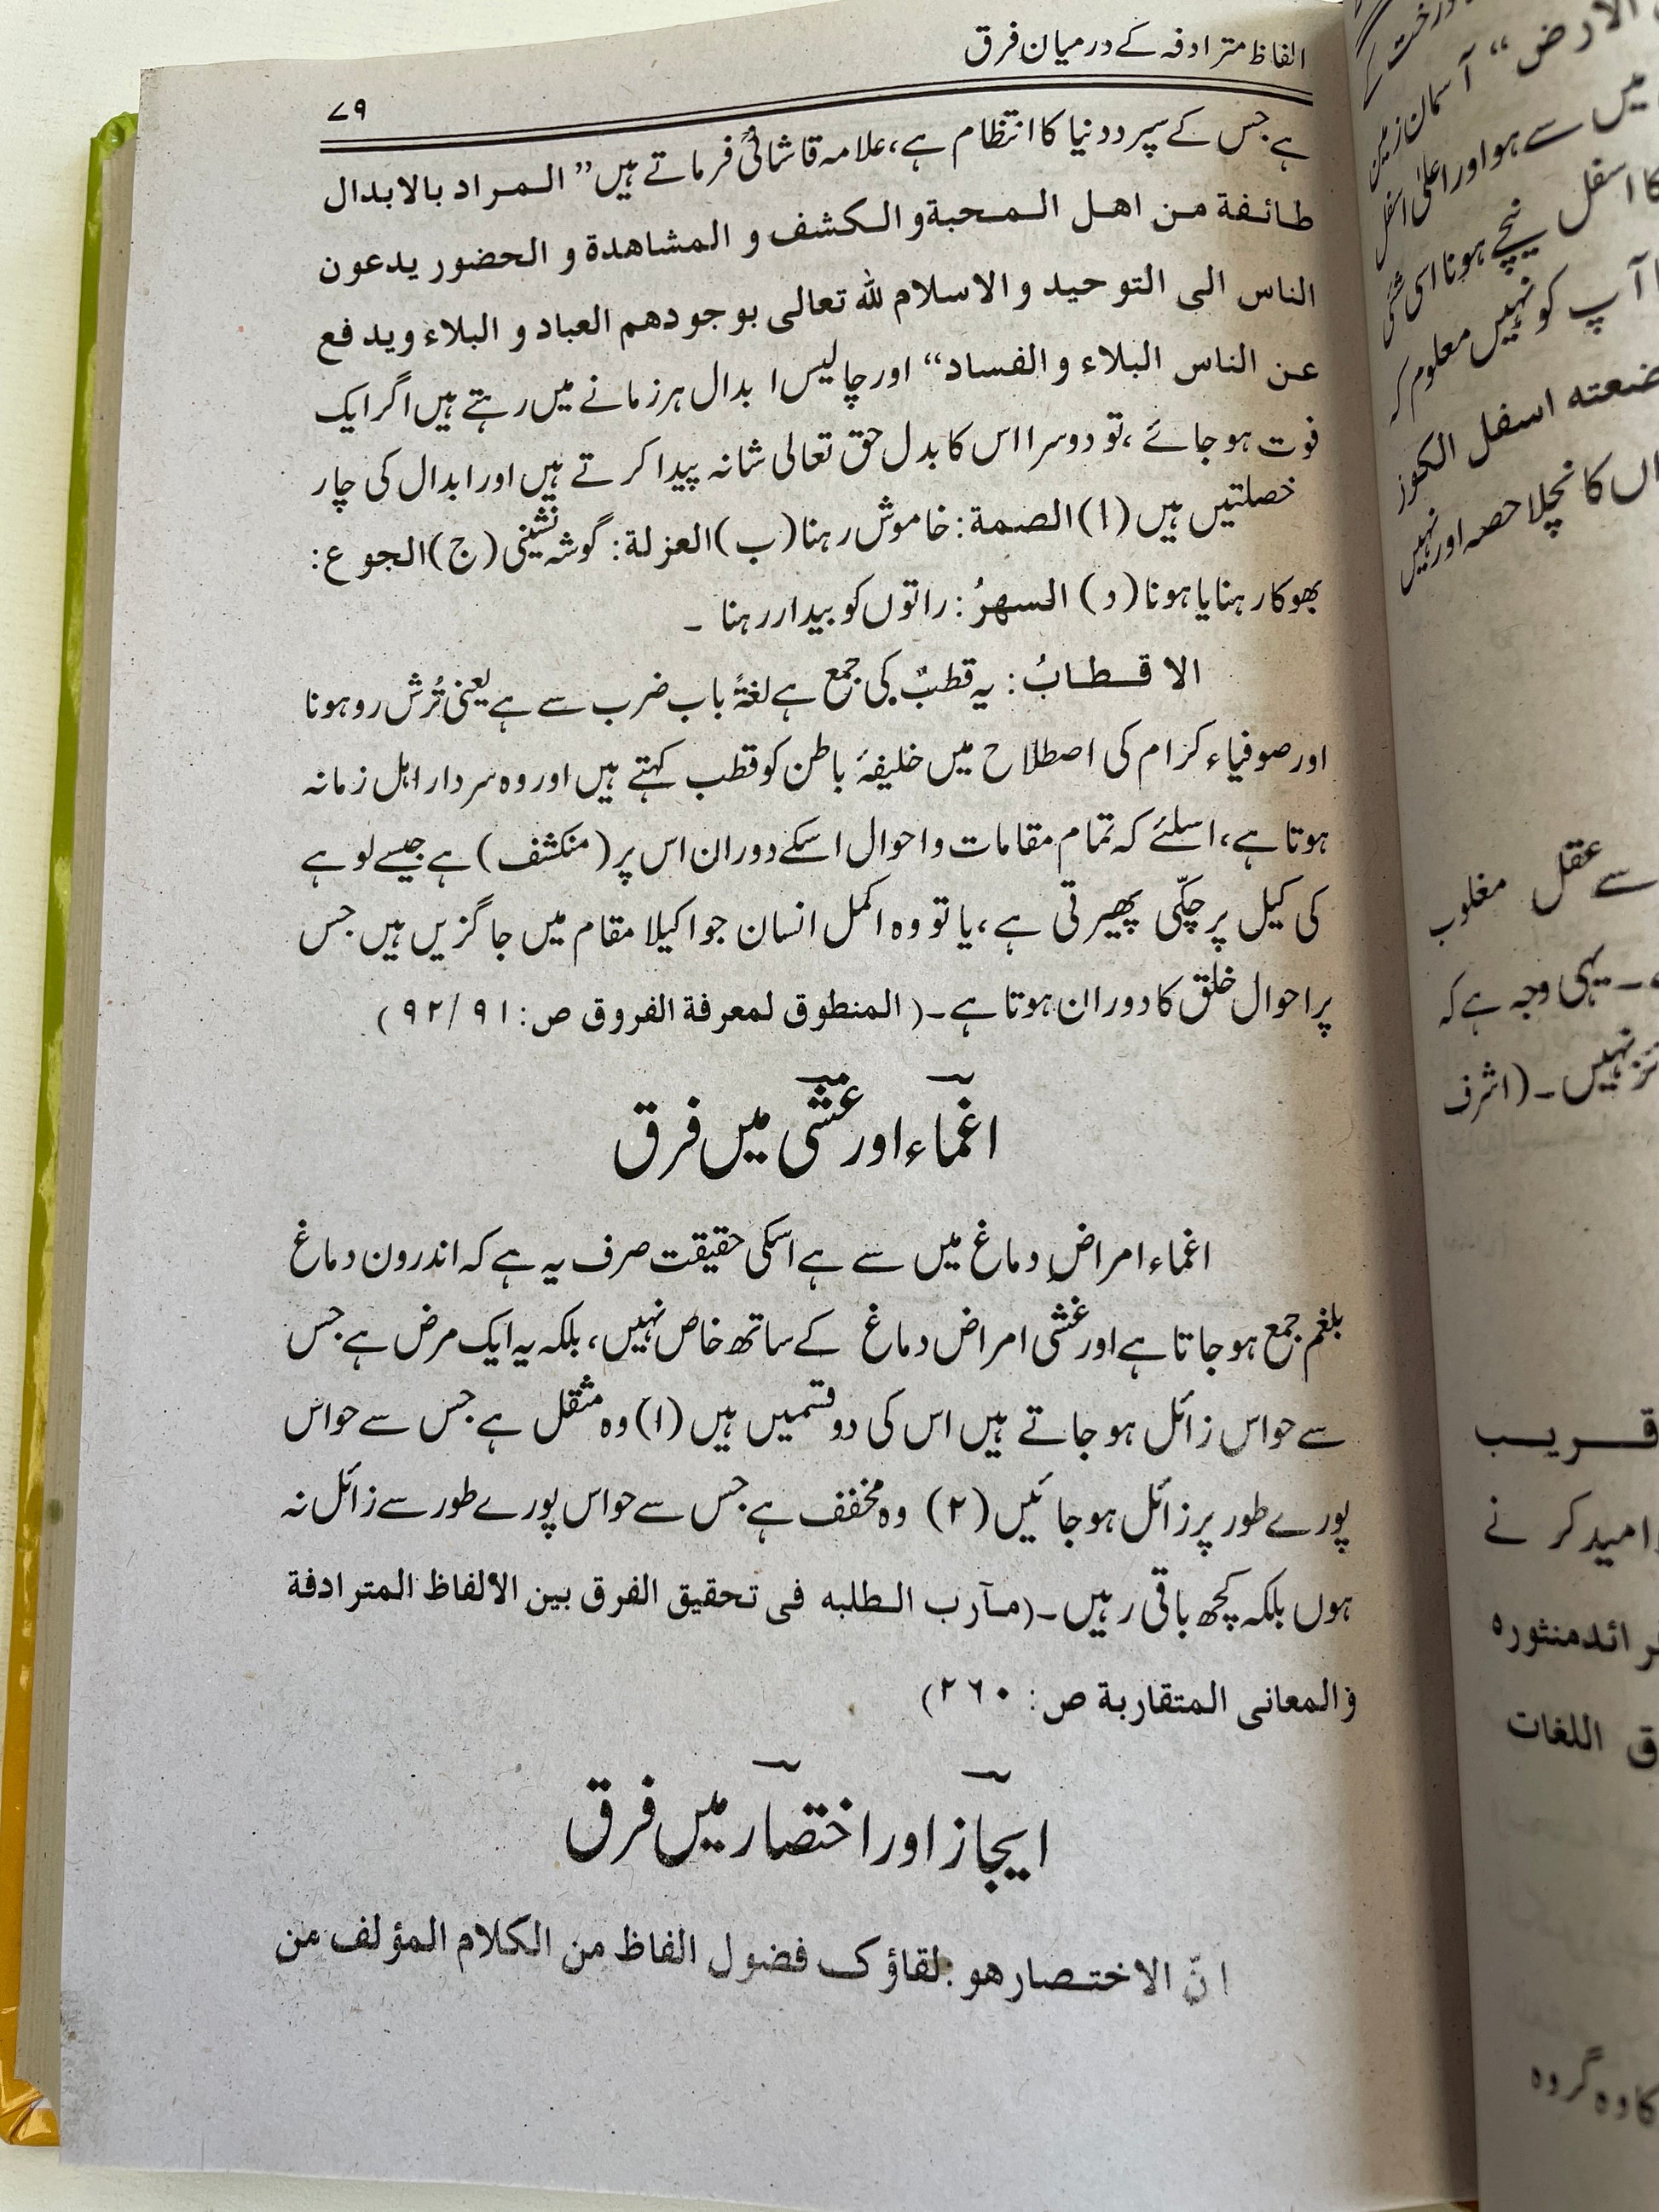 الفاظ مترادفہ کے درمیان فرق
۷۹
ہے جس کے سپرد دنیا کا انتظام ہے، علامہ قاشانیؒ فرماتے ہیں ”المراد بالابدال
طائفة من اهل المحبة و الكشف و المشاهدة و الحضور يدعون
الناس الى التوحيد و الاسلام لله تعالى بوجودهم العباد و البلاء ويدفع
عن الناس البلاء و الفساد“ اور چالیس ابدال ہر زمانے میں رہتے ہیں اگر ایک
فوت ہو جائے، تو دوسرا اس کا بدل حق تعالی شانہ پیدا کرتے ہیں اور ابدال کی چار
خصلتیں ہیں (ا) الصمة: خاموش رہنا (ب) العزلة: گوشہ نشینی (ج) الجوع:
بھوکا رہنا یا ہونا (د) السهرُ: راتوں کو بیدار رہنا ۔
الاقطابُ: یہ قطبٌ کی جمع ہے لغۃً باب ضرب سے ہے یعنی تُرش رو ہونا
اور صوفیاء کرام کی اصطلاح میں خلیفۂ باطن کو قطب کہتے ہیں اور وہ سردار اہل زمانہ
ہوتا ہے، اسلئے کہ تمام مقامات و احوال اسکے دوران اس پر (منکشف) ہے جیسے لوہے
کی کیل پر چکّی پھیرتی ہے، یا تو وہ اکمل انسان جو اکیلا مقام میں جاگزیں ہیں جس
پر احوال خلق کا دوران ہوتا ہے۔ (المنطوق لمعرفة الفروق ص: ۹۱/ ۹۲)
اغماء اور غشی میں فرق
اغماء امراض دماغ میں سے ہے اسکی حقیقت صرف یہ ہے کہ اندرون دماغ
بلغم جمع ہو جاتا ہے اور غشی امراض دماغ کے ساتھ خاص نہیں، بلکہ یہ ایک مرض ہے جس
سے حواس زائل ہو جاتے ہیں اس کی دو قسمیں ہیں (۱) وہ مثقل ہے جس سے حواس
پورے طور پر زائل ہو جائیں (۲) وہ مخفف ہے جس سے حواس پورے طور سے زائل نہ
ہوں بلکہ کچھ باقی رہیں۔ (مآرب الطلبه فى تحقيق الفرق بين الالفاظ المترادفة
والمعانى المتقاربة ص: ۲۶۰)
ایجاز اور اختصار میں فرق
انّ الاختصار هو لقاؤك فضول الفاظ من الكلام المؤلف من
الارض“ آسمان زمین
میں سے ہو اور اعلیٰ اسفل
کا اسفل نیچے ہونا اسی شئی
آپ کو نہیں معلوم کہ
ضعته اسفل الكوز
کا نچلا حصہ اور نہیں
سے عقل مغلوب
۔ یہی وجہ ہے کہ
نہیں۔ (اشرف
قریب
امید کرنے
رائد منثورہ
ق اللغات
کا وہ گروہ